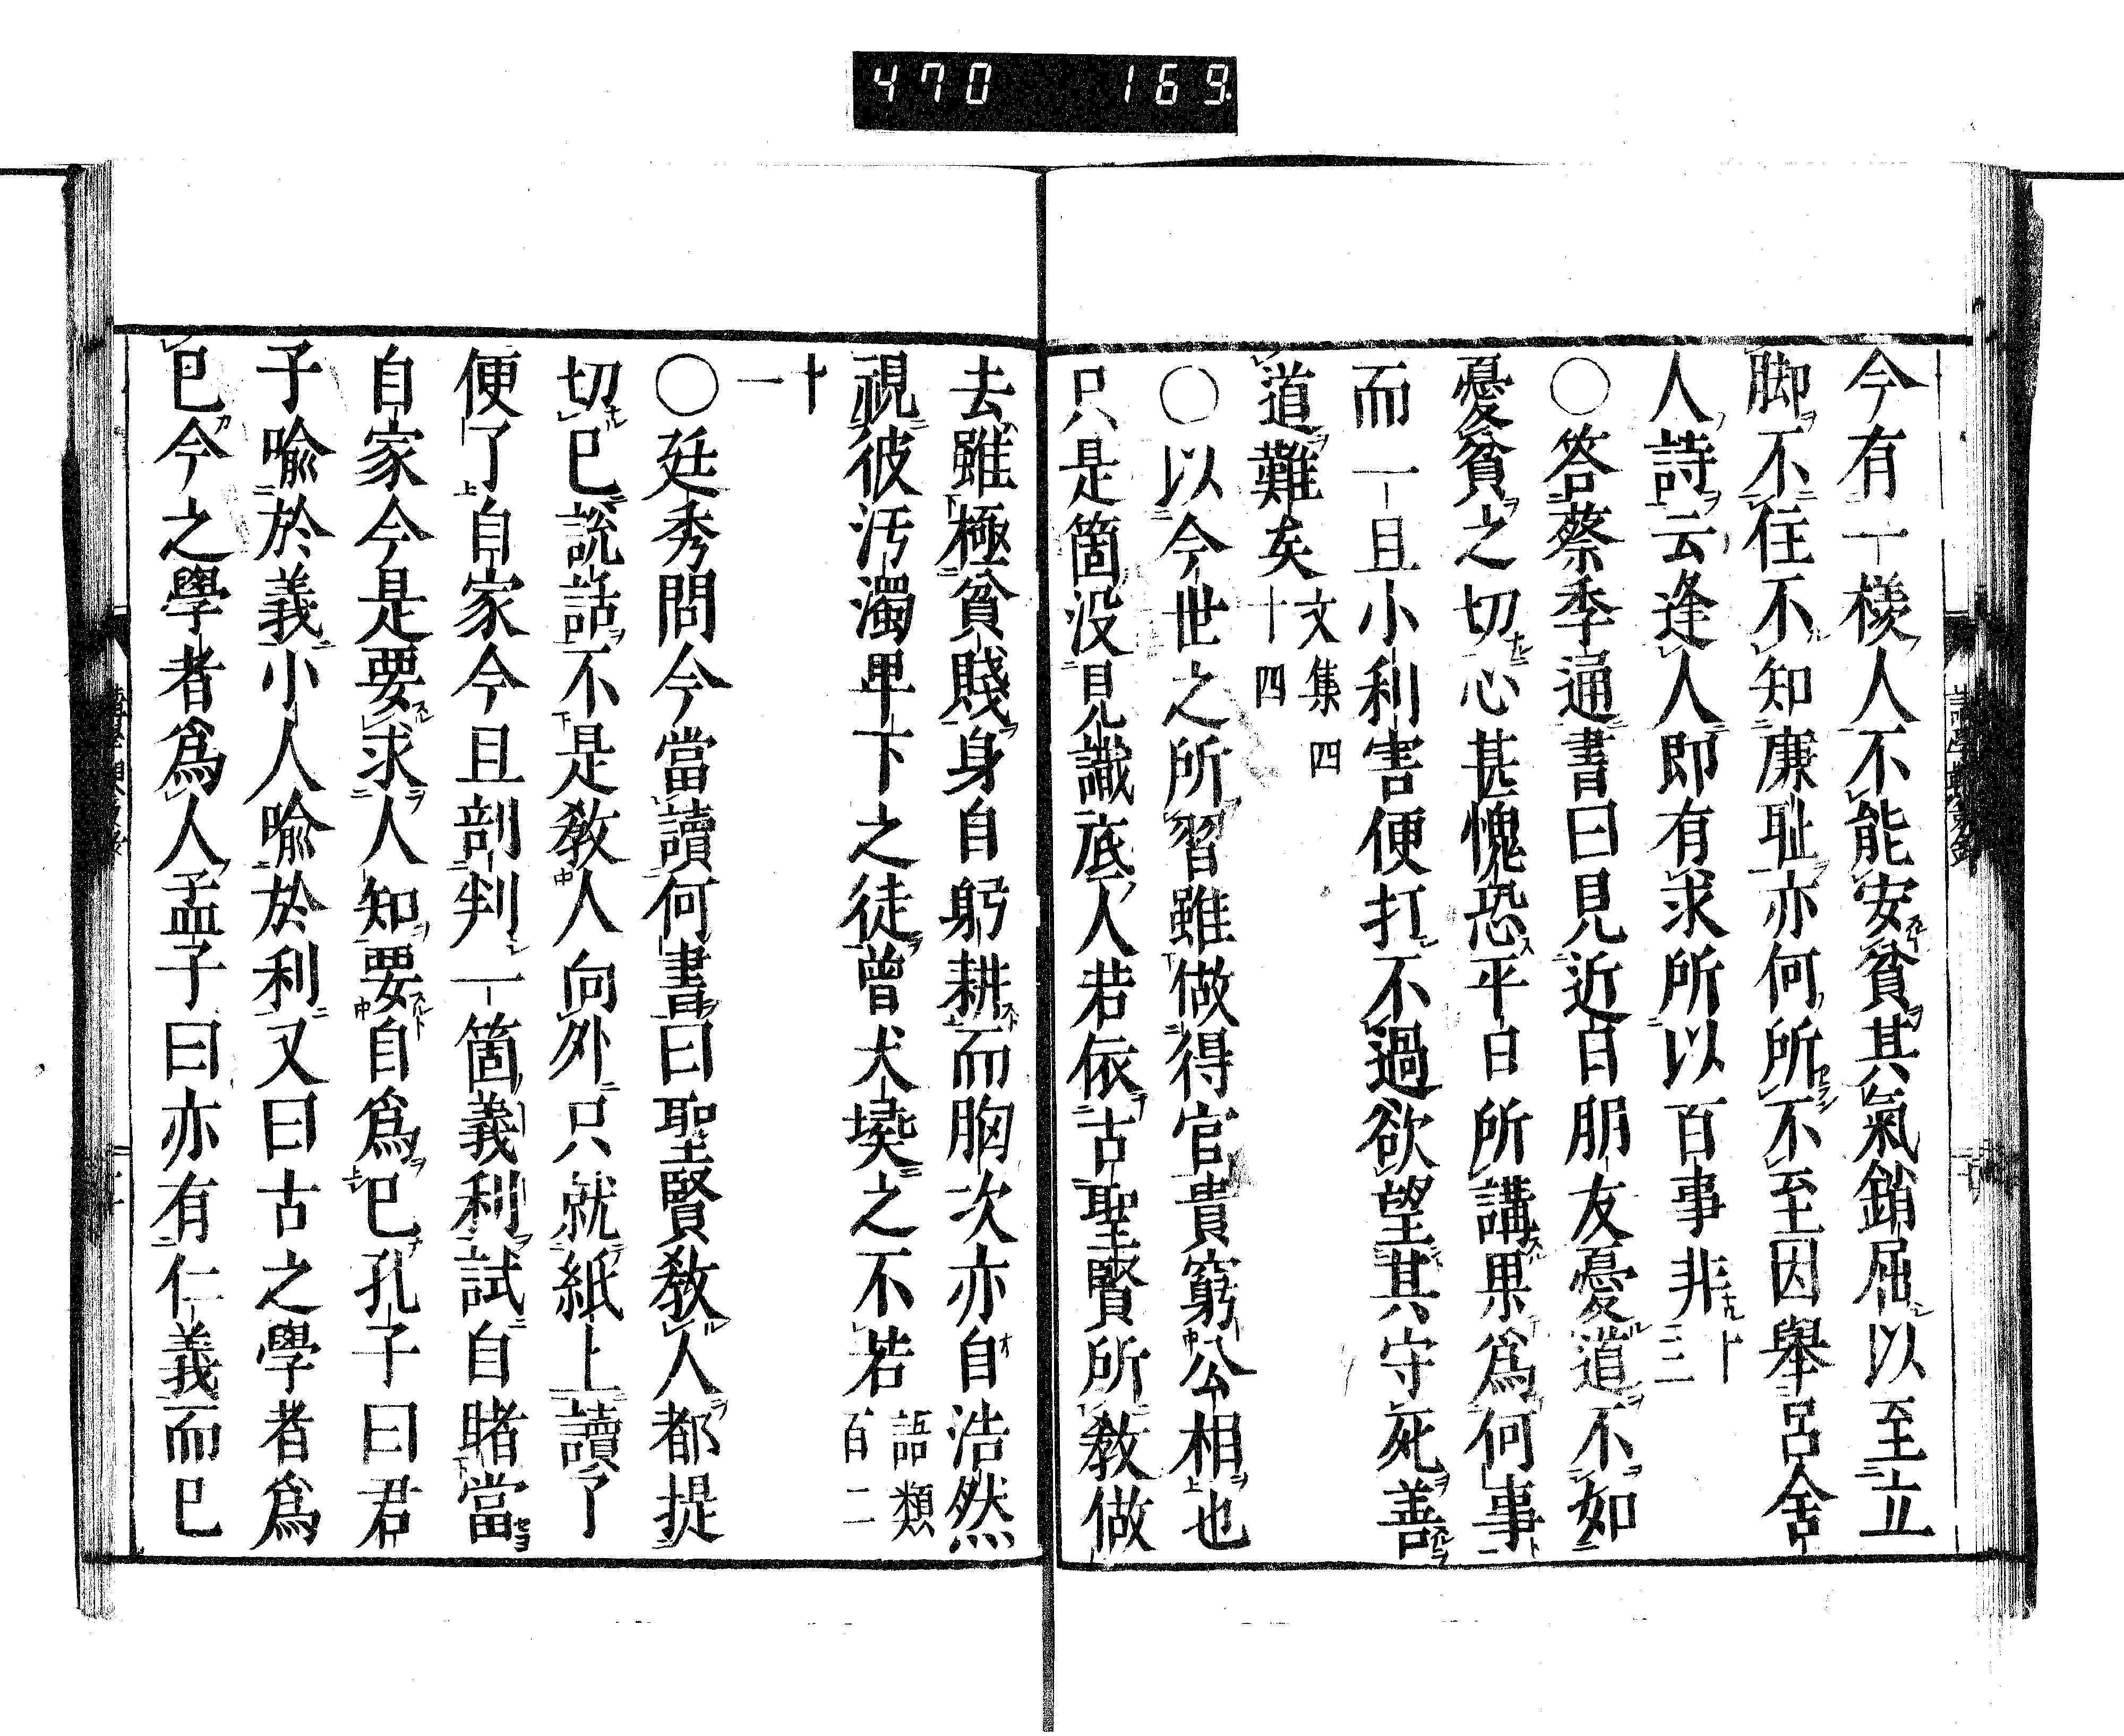 470 169
今有一樣人不能安貧其氣銷屈以至立
脚不住不知廉耻亦何所不至因舉呂舍
人詩云逢人即有求所以百事非十三
○答蔡季通書曰見近日朋友憂道不如
憂貧之切心甚愧恐平日所講果爲何事
而一且小利害便打不過欲望其守死善
道難矣文集四十四
○以今世之所習雖做得官貴窮公相也
只是箇没見識底人若依古聖賢所教做
去雖極貧賤身自躬耕而胸次亦自浩然
視彼汚濁卑下之徒曾犬彘之不若語類百二
十一
○廷秀問今當讀何書曰聖賢教人都提
切己說話不是教人向外只就紙上讀了
便了自家今且剖判一箇義利試自睹當
自家今是要求人知要自爲己孔子曰君
子喩於義小人喩於利又曰古之學者爲
己今之學者爲人孟子曰亦有仁義而已